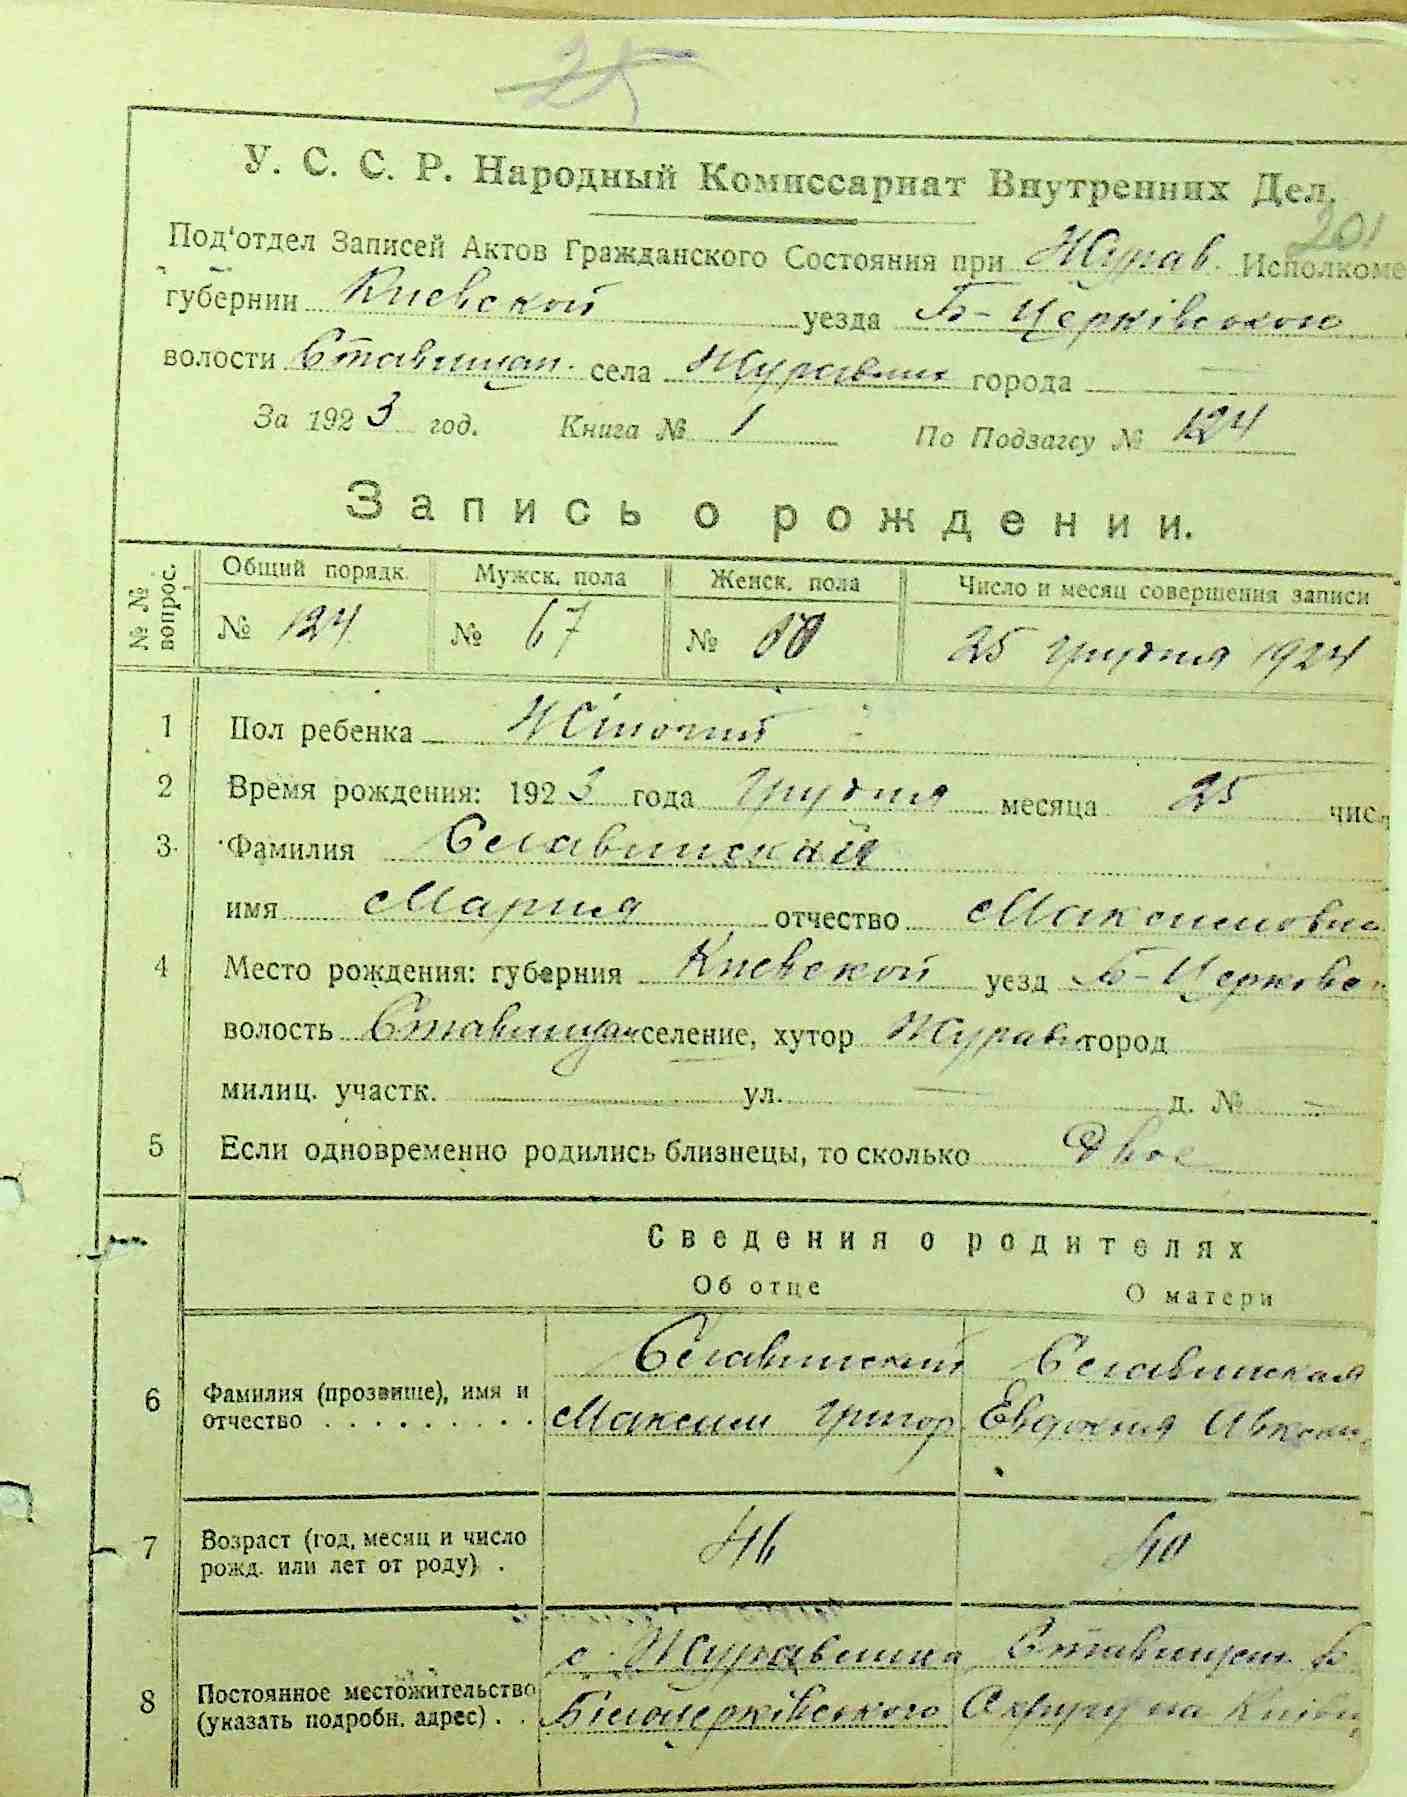 201
У. С. С. Р. Народный Комиссариат Внутренних Дел.
Под'отдел Записей Актов Гражданского Состояния при Журав. Исполкоме
губернии Киевской уезда Б-Церківского
волости Ставищан. села Журавлих города
За 1923 год. Книга № 1 По Подзагсу № 124
Запись о рождении.
№ № вопрос. Общий порядк. Мужск. пола Женск. пола Число и месяц совершения записи
№ 124 № 67 № 25 грудня 1924
1 Пол ребенка Жіночий
2 Время рождения: 1923 года Грудня месяца 25 чис.
3 Фамилия Селавинская
имя Мария отчество Максимовна
4 Место рождения: губерния Киевской уезд Б-Церковс
волость Ставищан селение, хутор Журавл город
милиц. участк. ул. д. №
5 Если одновременно родились близнецы, то сколько Двое
Сведения о родителях
Об отце О матери
Селавинский Селавинская
6 Фамилия (прозвище), имя и
отчество Максим Григор Евдокия Авксен
7 Возраст (год, месяц и число
рожд. или лет от роду) . 46 40
с. Журавлиха Ставищан. Б
8 Постоянное местожительство
(указать подробн. адрес) . . Білоцерківського Округу на Київщ